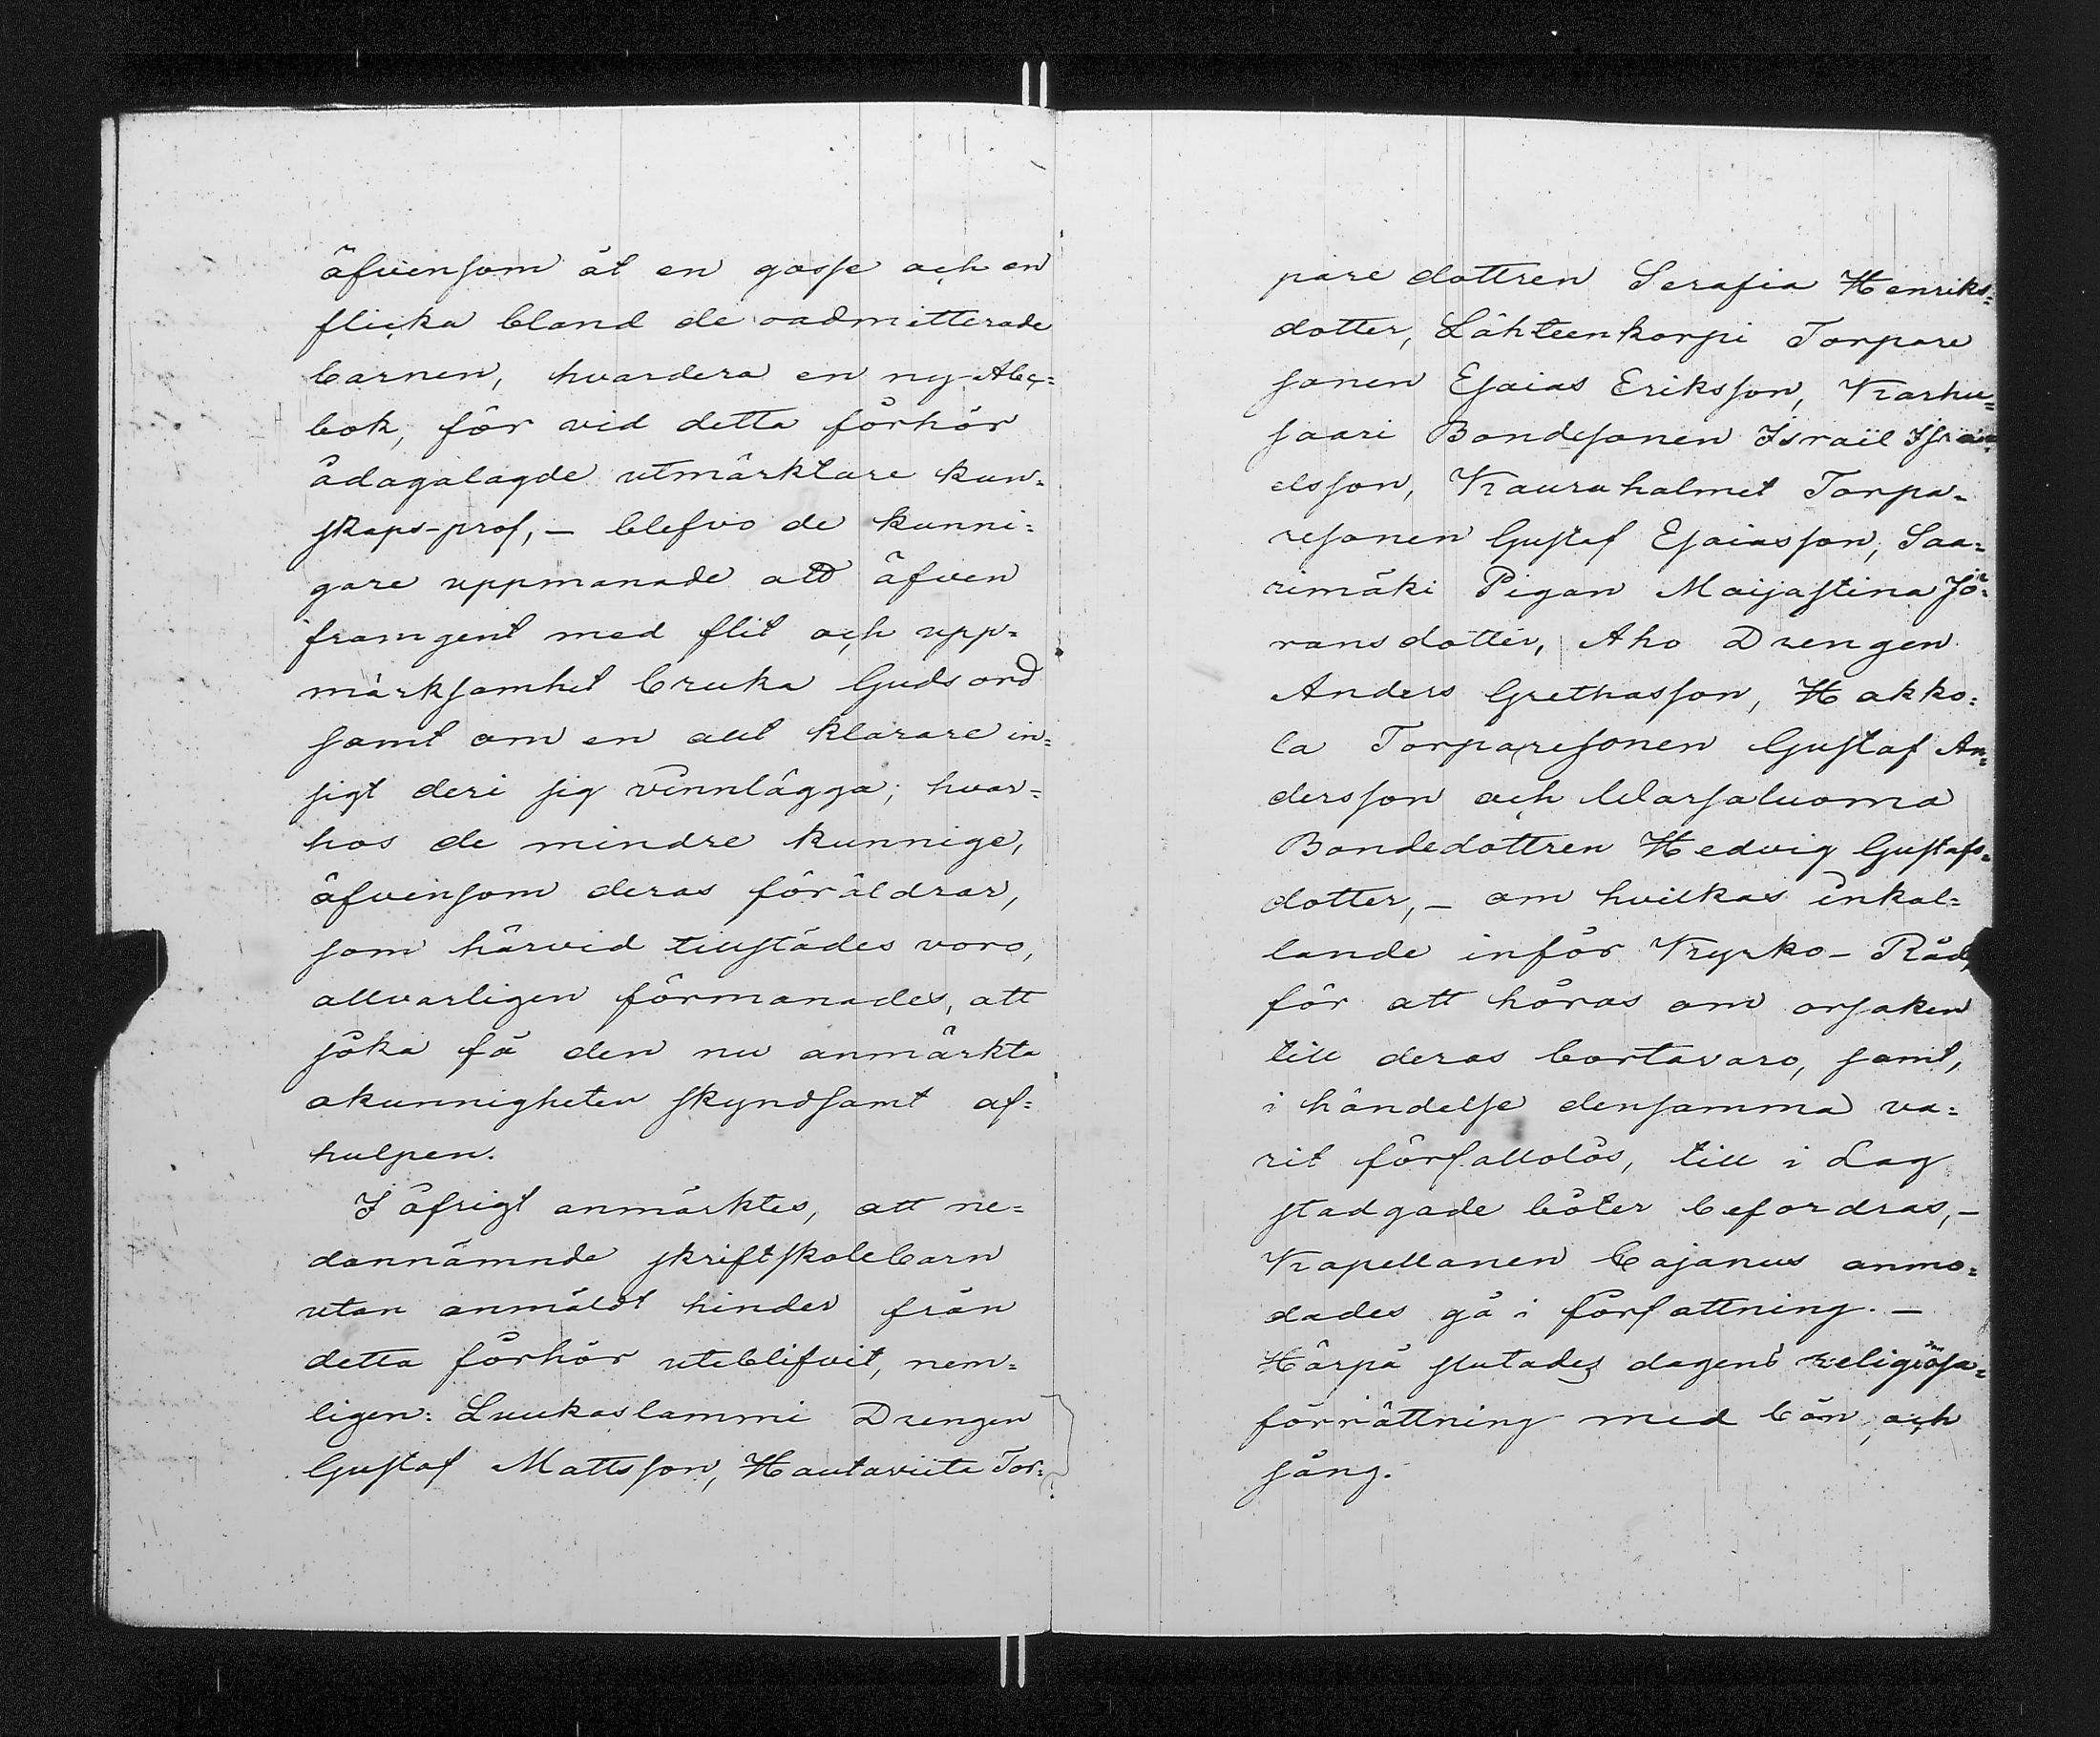 äfvensom åt en gosse och en
flicka bland de oadmitterade
barnen, hvardera en ny Abc=
bok, för vid detta förhör
ådagalagde utmärktare kun=
skaps-prof, – blefvo de kunni=
gare uppmanade att äfven
framgent med flit och upp=
märksamhet bruka Guds ord
samt om en allt klarare in=
sigt deri sig vinnlägga; hvar=
hos de mindre kunnige,
äfvensom deras föräldrar,
som härvid tillstädes voro,
allvarligen förmanades, att
söka få den nu anmärkta
okunnigheten skyndsamt af=
hulpen.
I öfrigt anmärktes, att ne=
dannämnde skriftskolebarn
utan anmäldt hinder från
detta förhör uteblifvit, nem=
ligen: Luukaslammi Drengen
Gustaf Mattsson, Hautaviita Tor=
pare dottren Serafia Henriks=
dotter, Lähteenkorpi Torpare
sonen Esaias Eriksson, Karhu=
saari Bondesonen Israël Isra=
elsson, Kauraholmet Torpa=
resonen Gustaf Esaiasson, Saa=
rimäki Pigan Maijastina Jö=
ransdotter, Aho Drengen
Anders Grethasson, Hakko=
la Torparesonen Gustaf An=
dersson och Marjaluoma
Bondedottren Hedvig Gustafs=
dotter, – om hvilkas inkal=
lande inför Kyrko-Råd,
för att höras om orsaken
till deras bortavaro, samt,
i händelse densamma va=
rit förfallolös, till i Lag
stadgade böter befordras, –
Kapellanen Cajanus anmo=
dades gå i författning. –
Härpå slutades dagens religiösa=
förrättning med bön, och
sång.